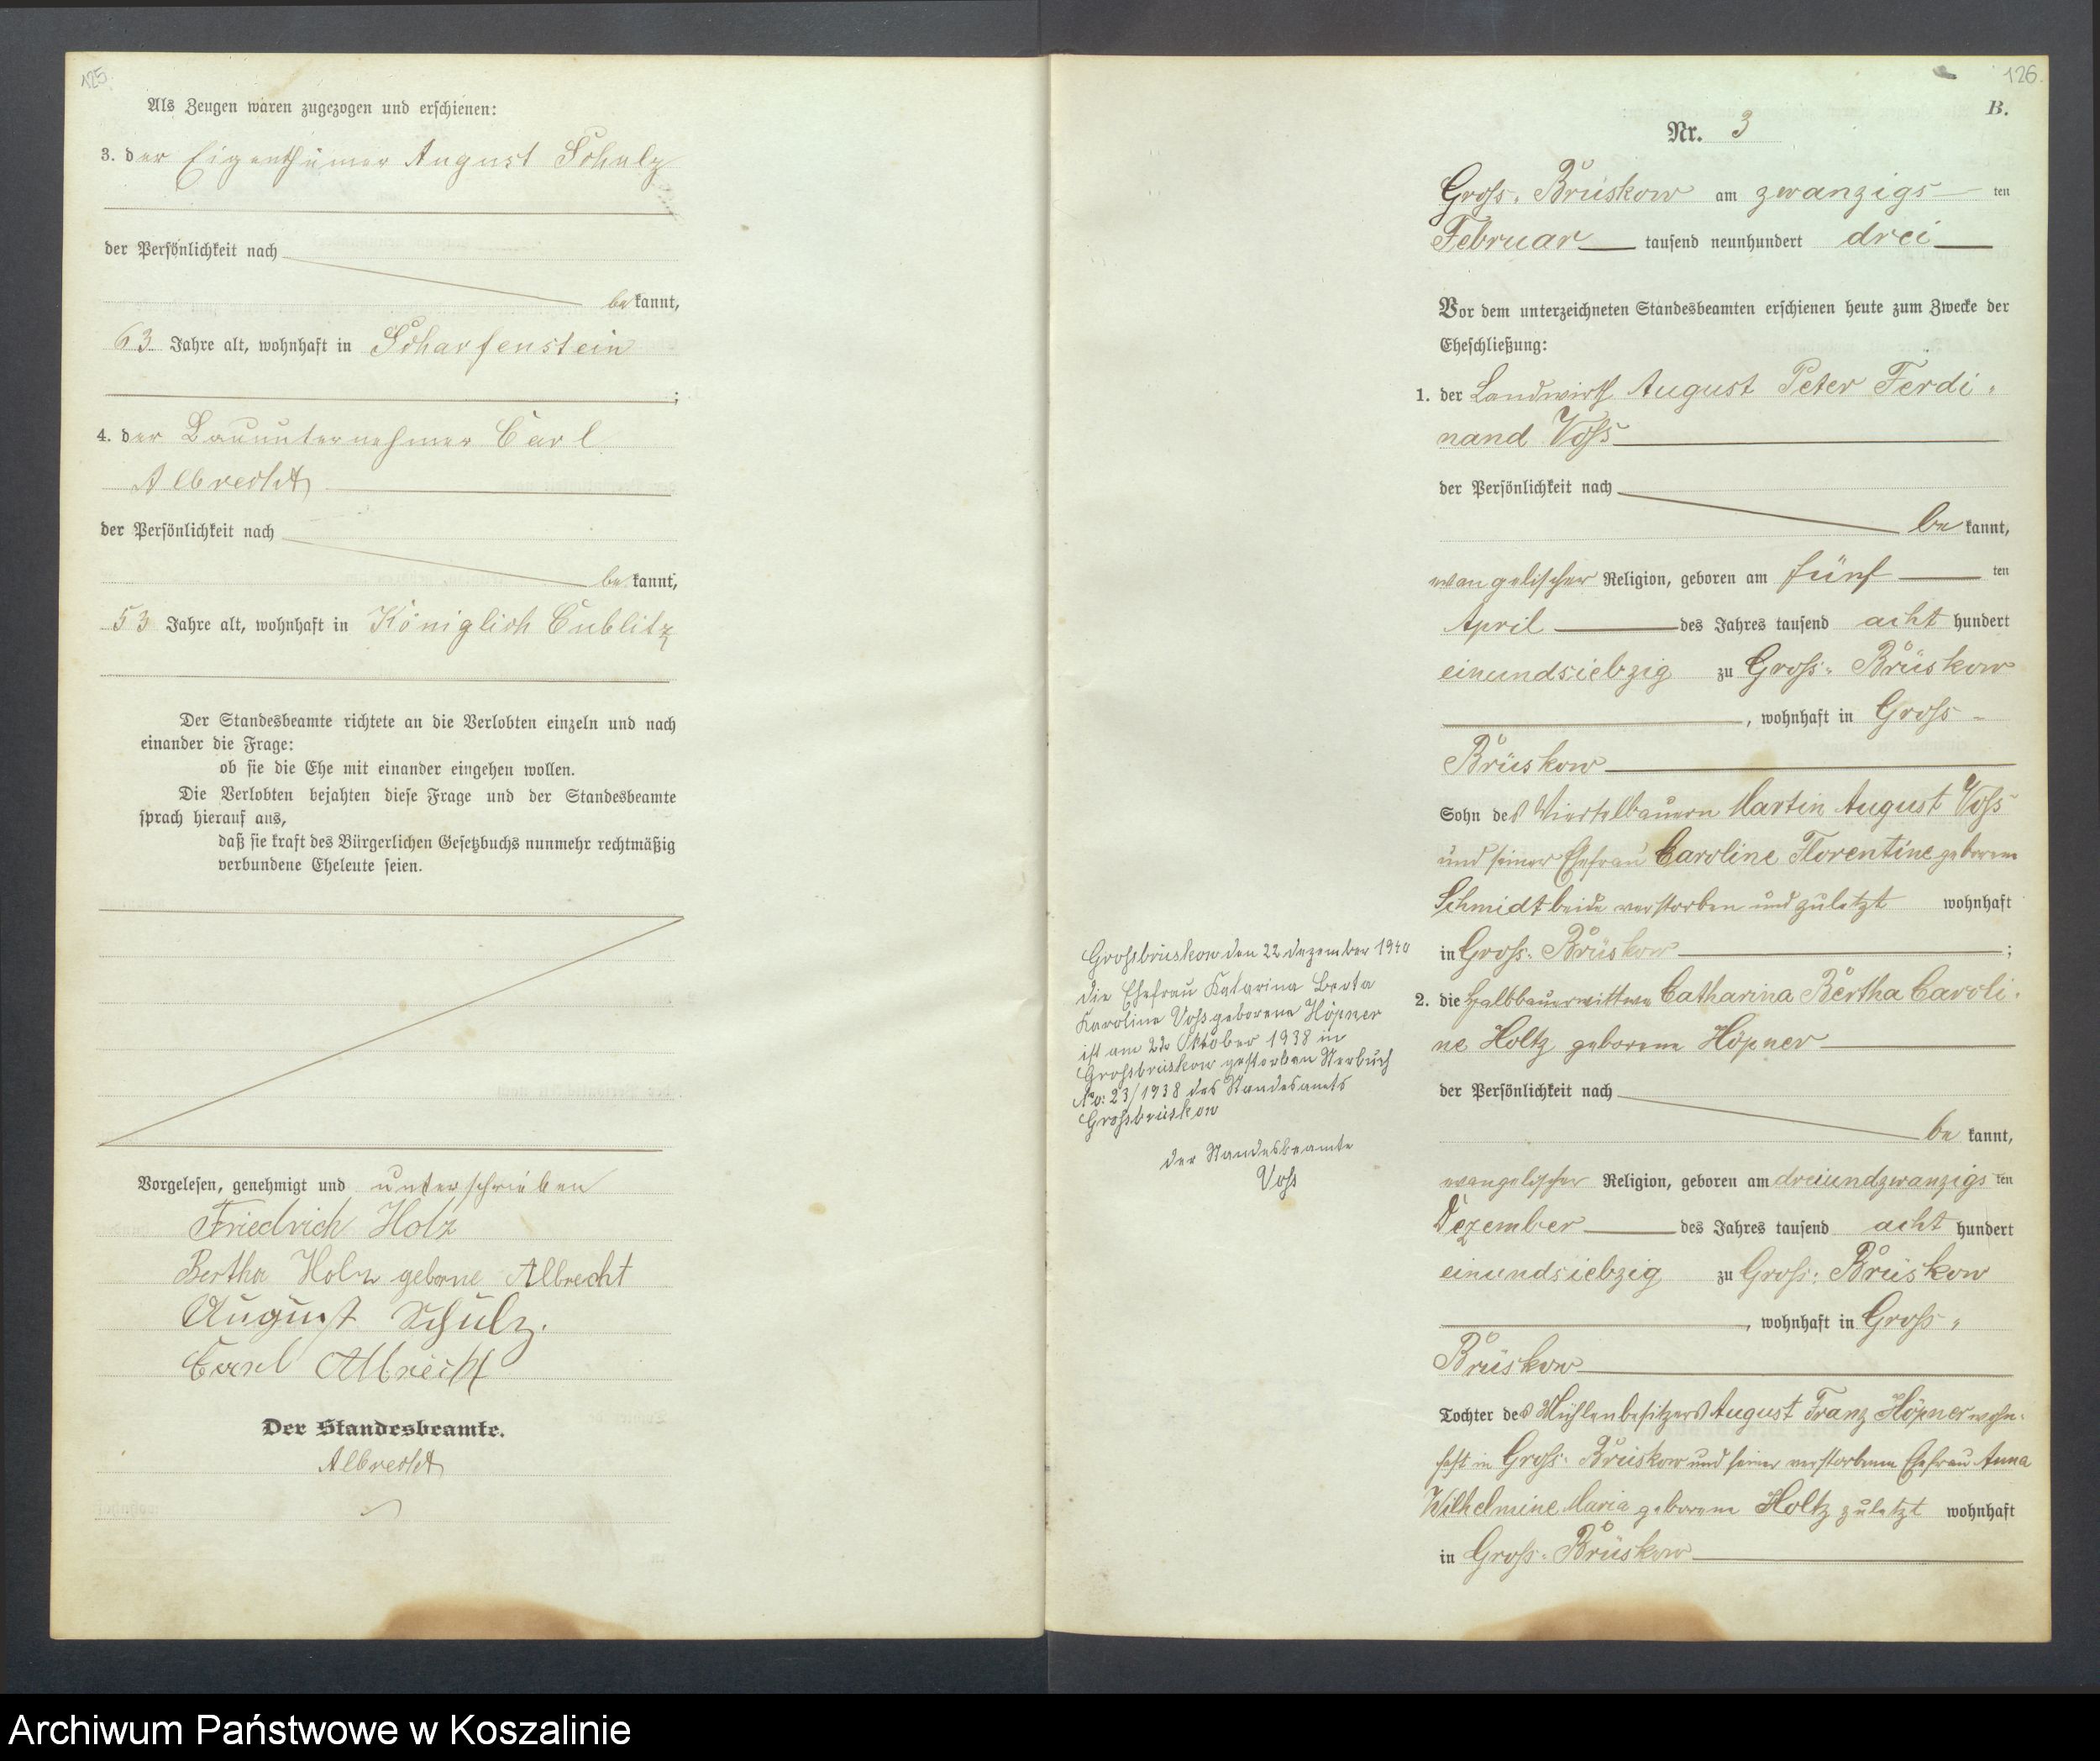 125.
Als Zeugen waren zugezogen und erschienen:
3. der Eigenthümer August Schulz
der Persönlichkeit nach
bekannt,
63 Jahre alt, wohnhaft in Scharfenstein
;
4. der Bauunternehmer Carl
Albrecht
der Persönlichkeit nach
bekannt,
53 Jahre alt, wohnhaft in Königlich Cublitz
Der Standesbeamte richtete an die Verlobten einzeln und nach
einander die Frage:
ob sie die Ehe mit einander eingehen wollen.
Die Verlobten bejahten diese Frage und der Standesbeamte
sprach hierauf aus,
daß sie kraft des Bürgerlichen Gesetzbuchs nunmehr rechtmäßig
verbundene Eheleute seien.
Vorgelesen, genehmigt und unterschrieben
Friedrich Holz
Bertha Holz geborne Albrecht
August Schulz.
Carl Albrecht
Der Standesbeamte.
Albrecht
126.
B.
Nr. 3
Gross-Brüskow am zwanzigs ten
Februar tausend neunhundert drei
Vor dem unterzeichneten Standesbeamten erschienen heute zum Zwecke der
Eheschließung:
1. der Landwirth August Peter Ferdi-
nand Voss
der Persönlichkeit nach
bekannt,
evangelischer Religion, geboren am fünf ten
April des Jahres tausend acht hundert
einundsiebzig zu Gross-Brüskow
, wohnhaft in Gross-
Brüskow
Sohn des Viertelbauern Martin August Voss
und seiner Ehefrau Caroline Florentine geborene
Schmidt beide verstorben und zuletzt wohnhaft
in Gross-Brüskow ;
2. die Halbbauerwittwe Catharina Bertha Caroli-
ne Holtz geborene Höpner
der Persönlichkeit nach
bekannt,
evangelischer Religion, geboren am dreiundzwanzigs ten
Dezember des Jahres tausend acht hundert
einundsiebzig zu Gross-Brüskow
, wohnhaft in Gross-
Brüskow
Tochter des Mühlenbesitzers August Franz Höpner wohn-
haft in Gross-Brüskow und seiner verstorbenen Ehefrau Anna
Wilhelmine Maria geborene Holtz zuletzt wohnhaft
in Gross-Brüskow
Grossbrüskow den 22 Dezember 1940
die Ehefrau Katarina Berta
Karoline Voss geborene Höpner
ist am 22 Oktober 1938 in
Grossbrüskow gestorben Sterbuch
No: 23/1938 des Standesamts
Grossbrüskow
der Standesbeamte
Voss
Archiwum Państwowe w Koszalinie